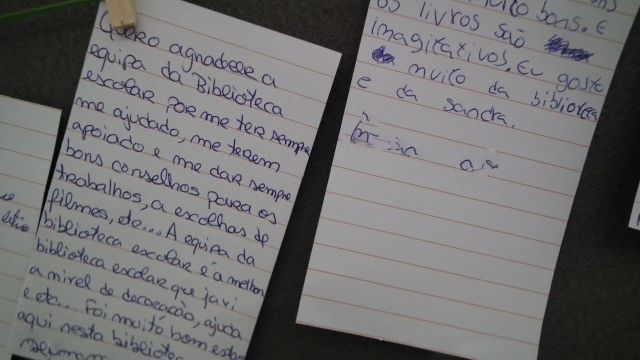 Quero agradecer a
equipa da Biblioteca
escolar por me ter sempre
me ajudado, me terem
apoiado e me dar sempre
bons conselhos para os
trabalhos, a escolhas de
filmes, etc... A equipa da
biblioteca escolar é a melhor
biblioteca escolar que já vi
a nivel de decoração, ajuda
e etc... Foi muito bom estar
aqui nesta biblioteca
bons. E
os livros são
imagitativos. Eu goste
muito da biblioteca
e da sandra.